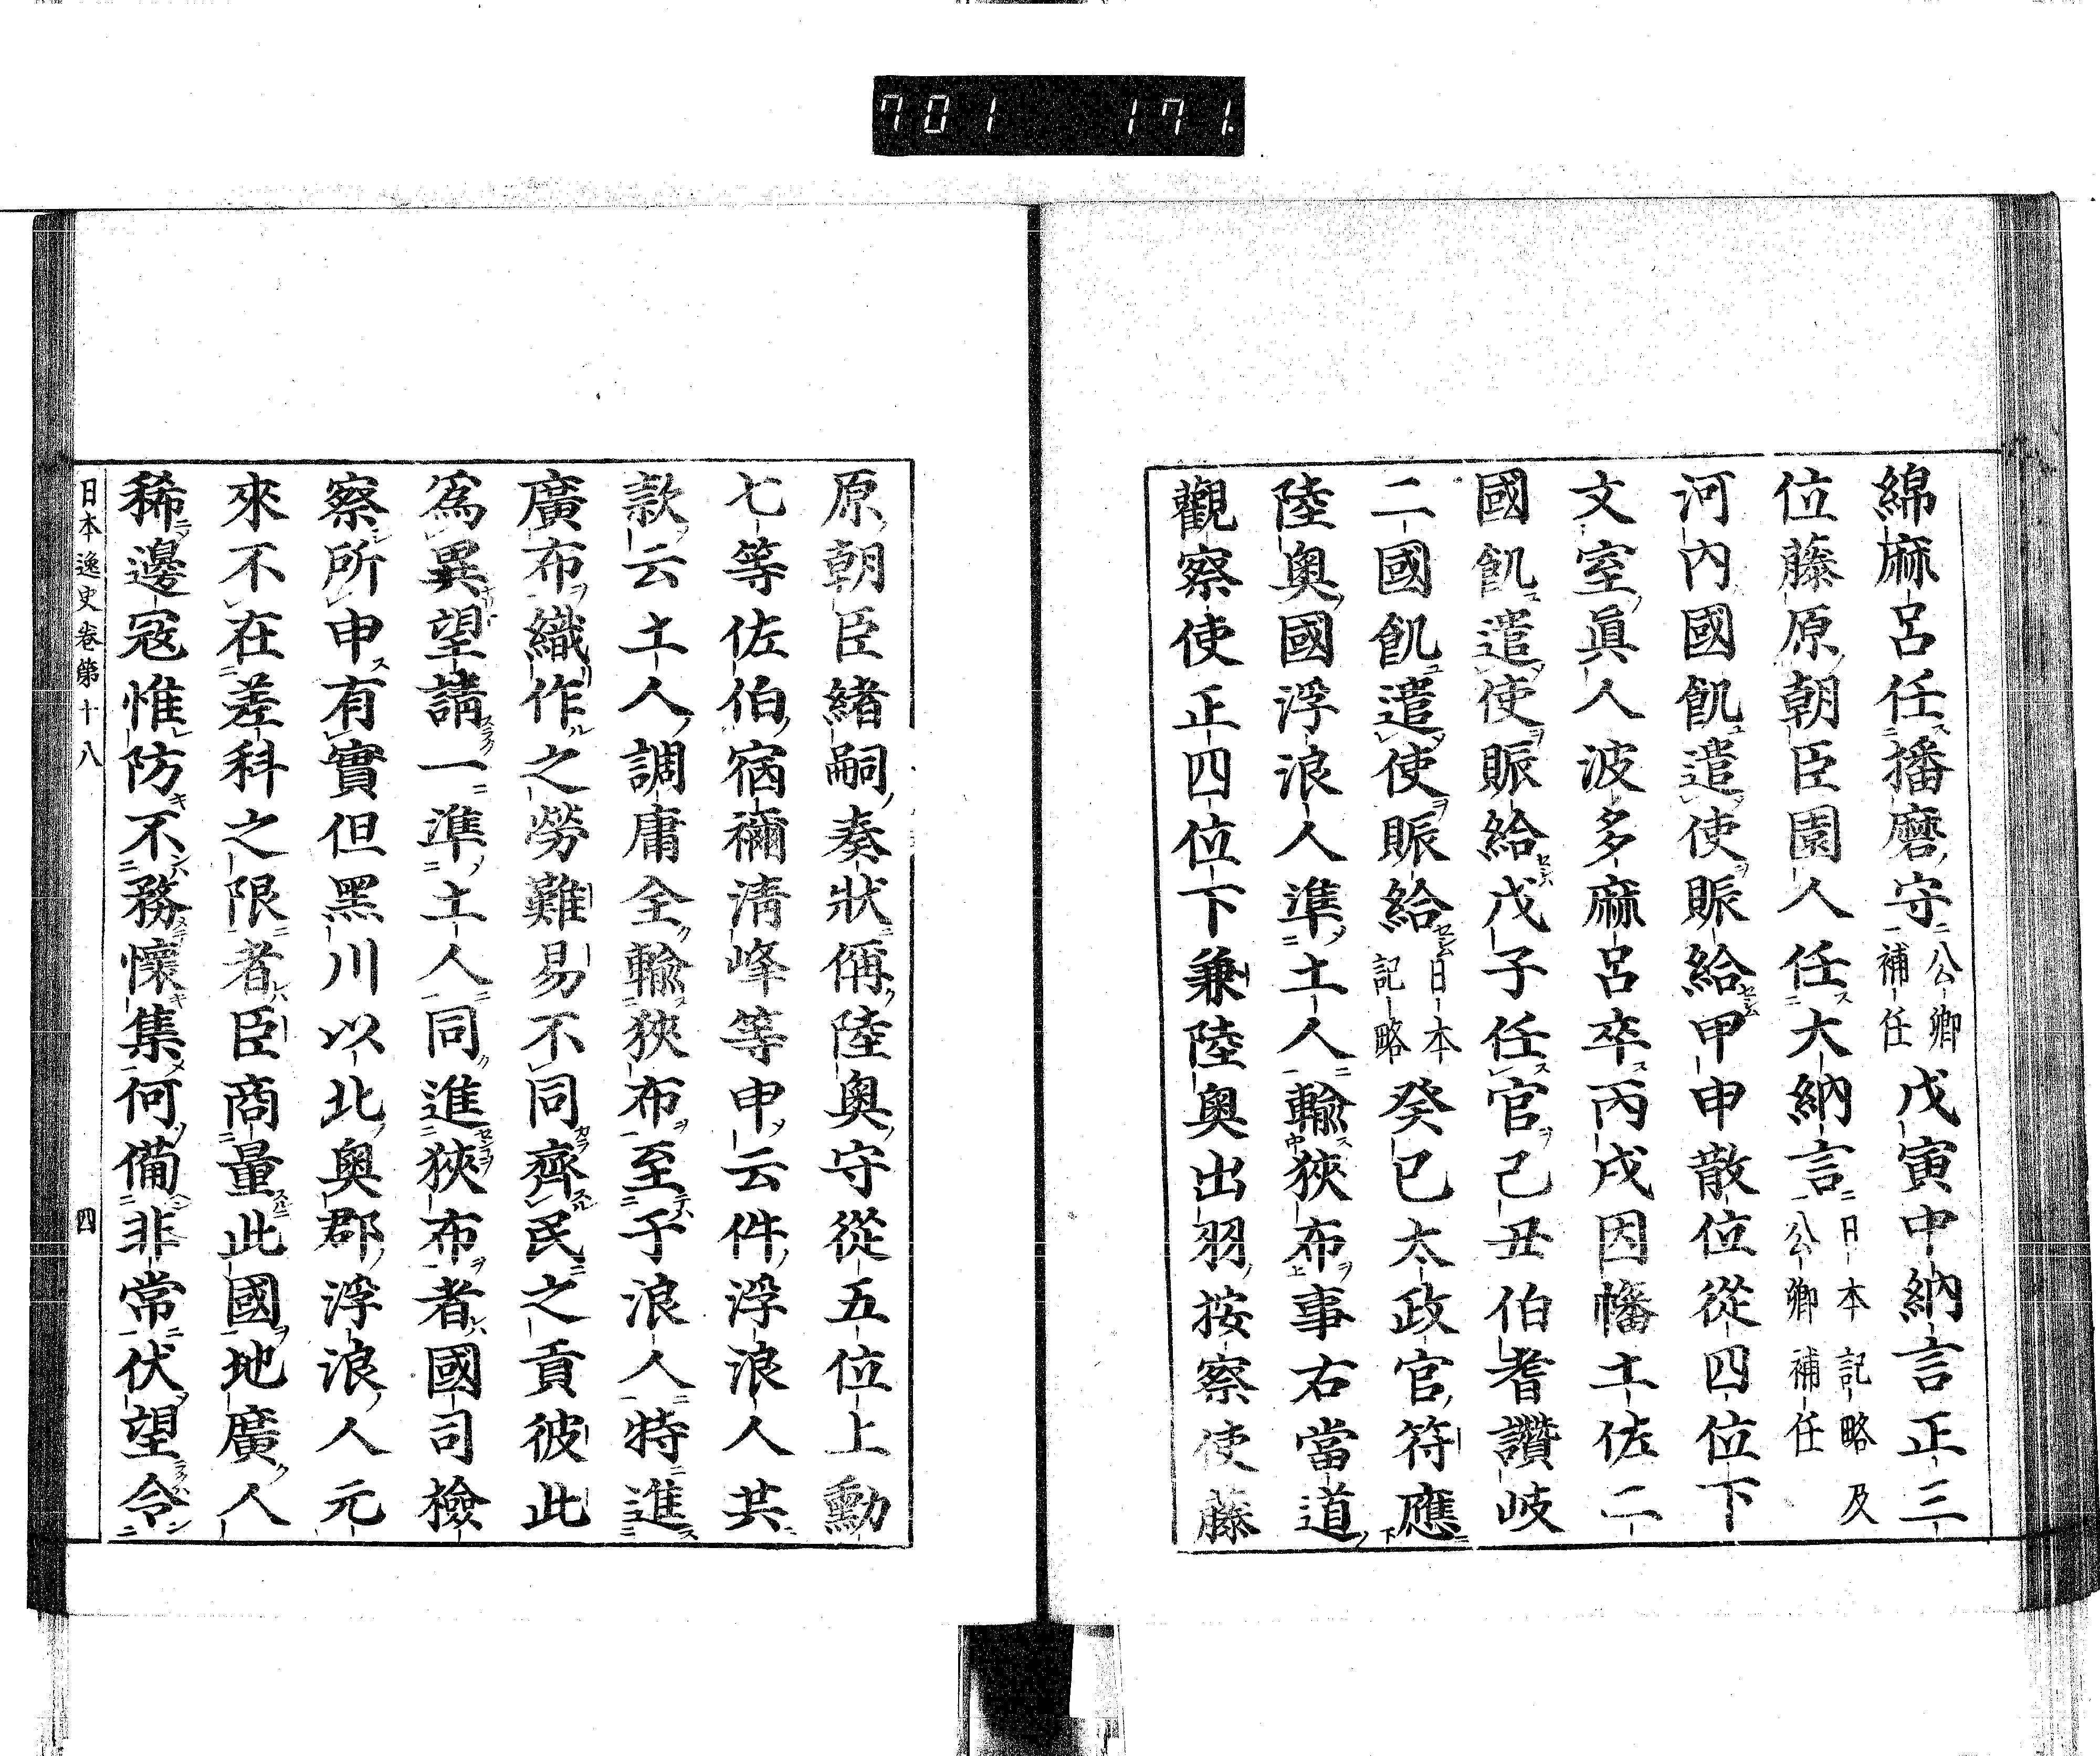 701 171.
綿麻呂任播磨守公卿補任戊寅中納言正三
位藤原朝臣園人任大納言日本記略及公卿補任
河内國飢遣使賑給甲申散位從四位下
文室眞人波多麻呂卒丙戌因幡土佐二
國飢遣使賑給戊子任官己丑伯耆讚岐
二國飢遣使賑給日本記略癸巳太政官符應
陸奥國浮浪人準土人輸狹布事右當道
觀察使正四位下兼陸奥出羽按察使藤
原朝臣緒嗣奏狀偁陸奥守從五位上勳
七等佐伯宿禰清峰等申云件浮浪人共
款云土人調庸全輸狹布至于浪人特進
廣布織作之勞難易不同齊民之貢彼此
爲異望請一準土人同進狹布者國司檢
察所申有實但黑川以北奥郡浮浪人元
來不在差科之限者臣商量此國地廣人
稀邊寇惟防不務懷集何備非常伏望令
日本逸史卷第十八 四